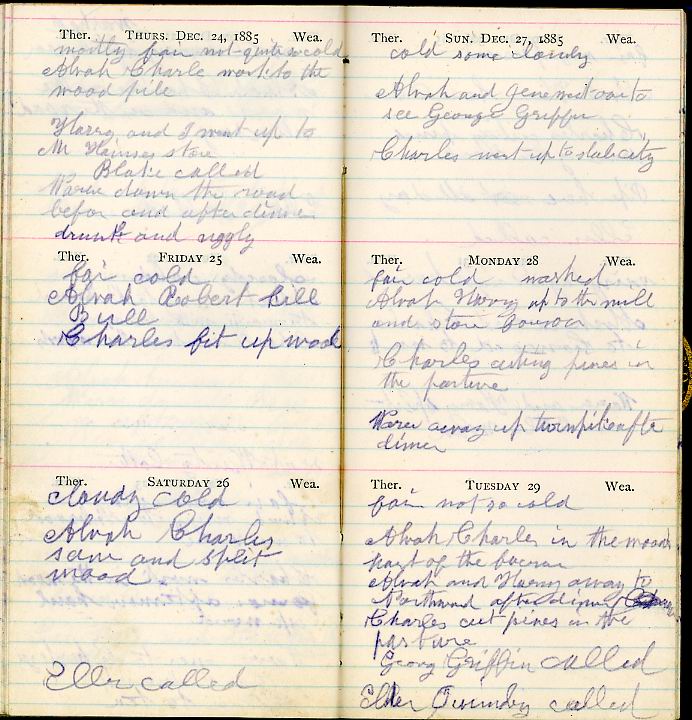 Ther. THURS. DEC. 24, 1885 Wea.
mostly fair not quite so cold
Alvah Charle work to the
wood pile
Harry and I went up to
M Haines store
Blake called
down the road
befor and after dinner
drunk and uggly
Ther. FRIDAY 25 Wea.
fair cold
Alvah Robert kill
Bull
Charles fit up wood
Ther. SATURDAY 26 Wea.
cloudy cold
Alvah Charles
saw and split
wood
Eller called
Ther. SUN. DEC. 27, 1885 Wea.
cold some cloudy
Alvah and Jene went over to
see George Griffin
Charles went up to slab city
Ther. MONDAY 28 Wea.
fair cold washed
Alvah Harry up to the mill
and store
Charles cuting pines in
the parture
away up turnpike afte
dinner
Ther. TUESDAY 29 Wea.
fair not so cold
Alvah Charles in the woods
part of the
Alvah and Harry away to
Northwood after dinner
Charles cut pines in the
parture
Georg Griffin called
Elder called